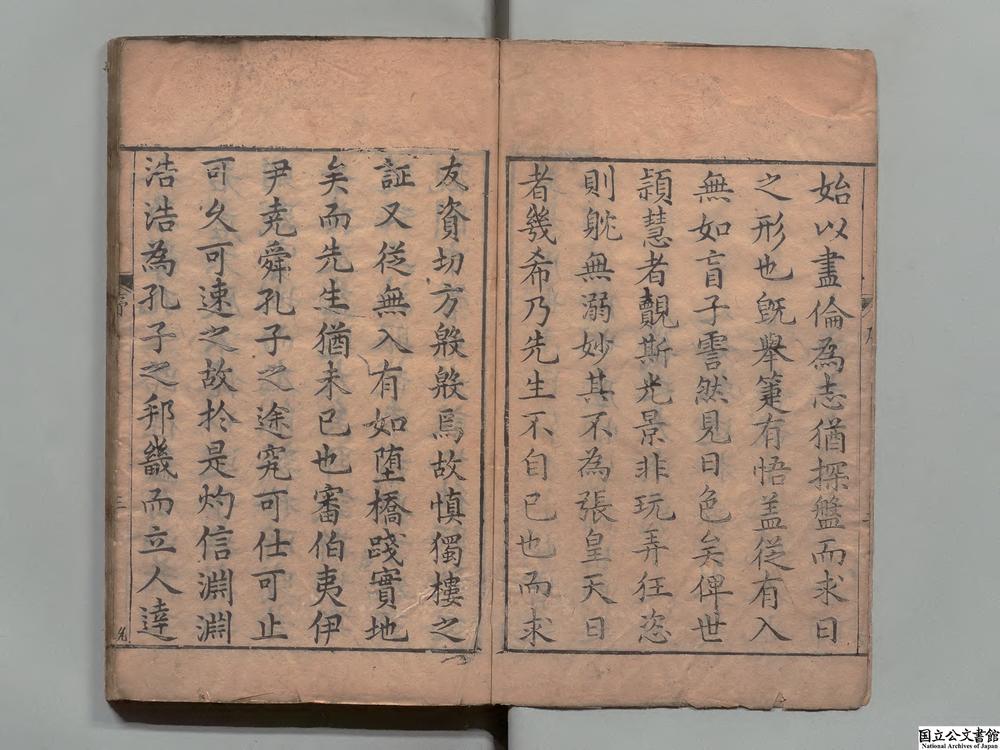 始以盡倫為志猶探盤而求日
之形也旣舉箑有悟盖從有入
無如盲子霅然見日色矣俾世
頴慧者覿斯光景非玩弄狂恣
則躭無溺妙其不為張皇天日
者幾希乃先生不自已也而求
友資切方殷殷焉故慎獨樓之
証又從無入有如墮橋踐實地
矣而先生猶未已也審伯夷伊
尹堯舜孔子之途究可仕可止
可久可速之故於是灼信淵淵
浩浩為孔子之邦畿而立人達
序
三
国立公文書館
National Archives of Japan